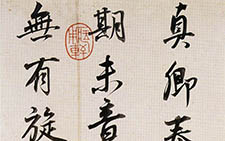 真卿奉
期未音
無有旋